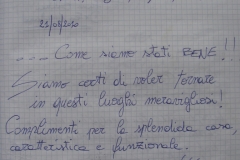 21/08/2020
.... Come siamo stati BENE!!
Siamo certi di voler tornare
in questi luoghi meravigliosi!
Complimenti per la splendida casa,
caratteristica e funzionale.